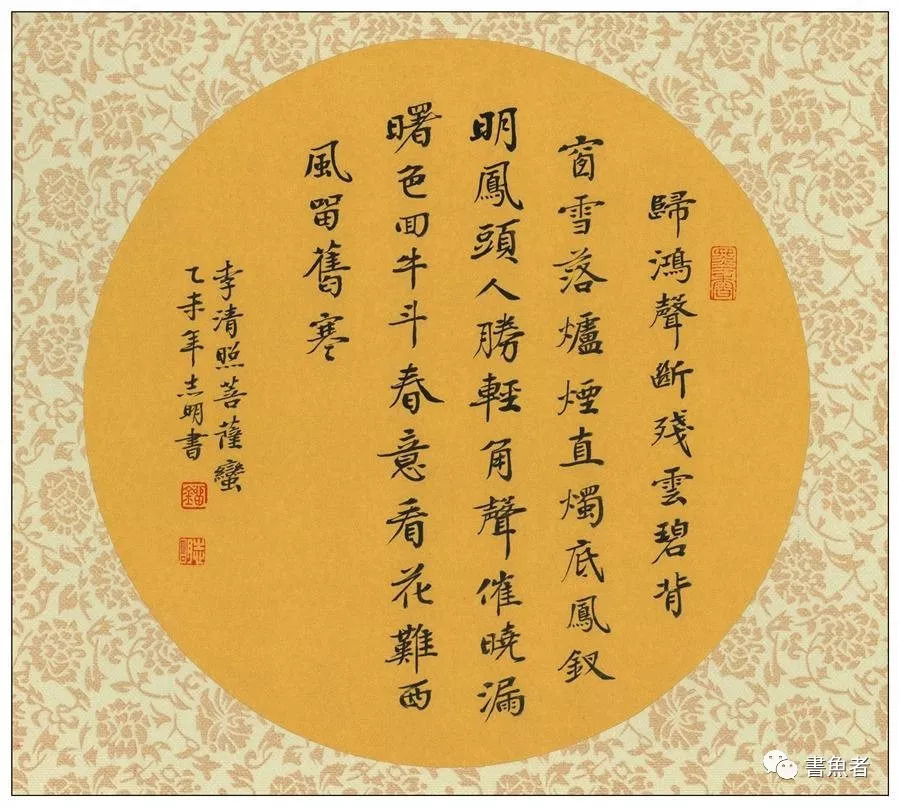 歸鴻聲斷殘雲碧背
窗雪落爐煙直燭底鳳釵
明鳳頭人勝輕角聲催曉漏
曙色回牛斗春意看花難西
風留舊寒
李清照菩薩蠻
乙未年志明書
書魚者